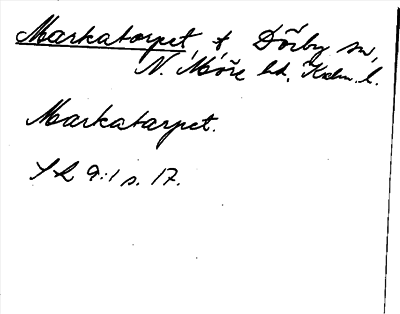 Markatorpet, t Dörby sn,
N. Möre hd, Kalm. l.
Markatarpet.
SL 9:1 s. 17.